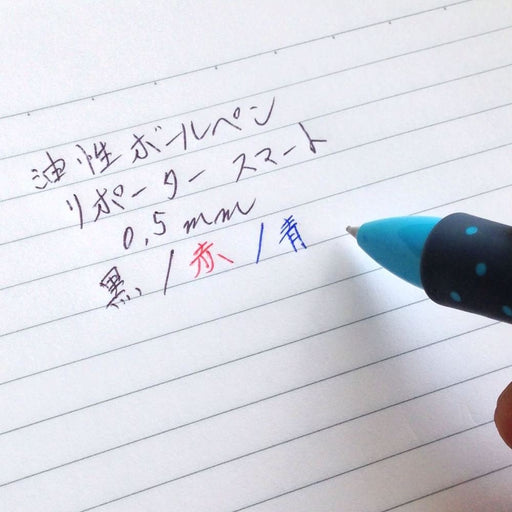 油性ボールペン
リポーター スマート
0.5mm
黒/赤/青